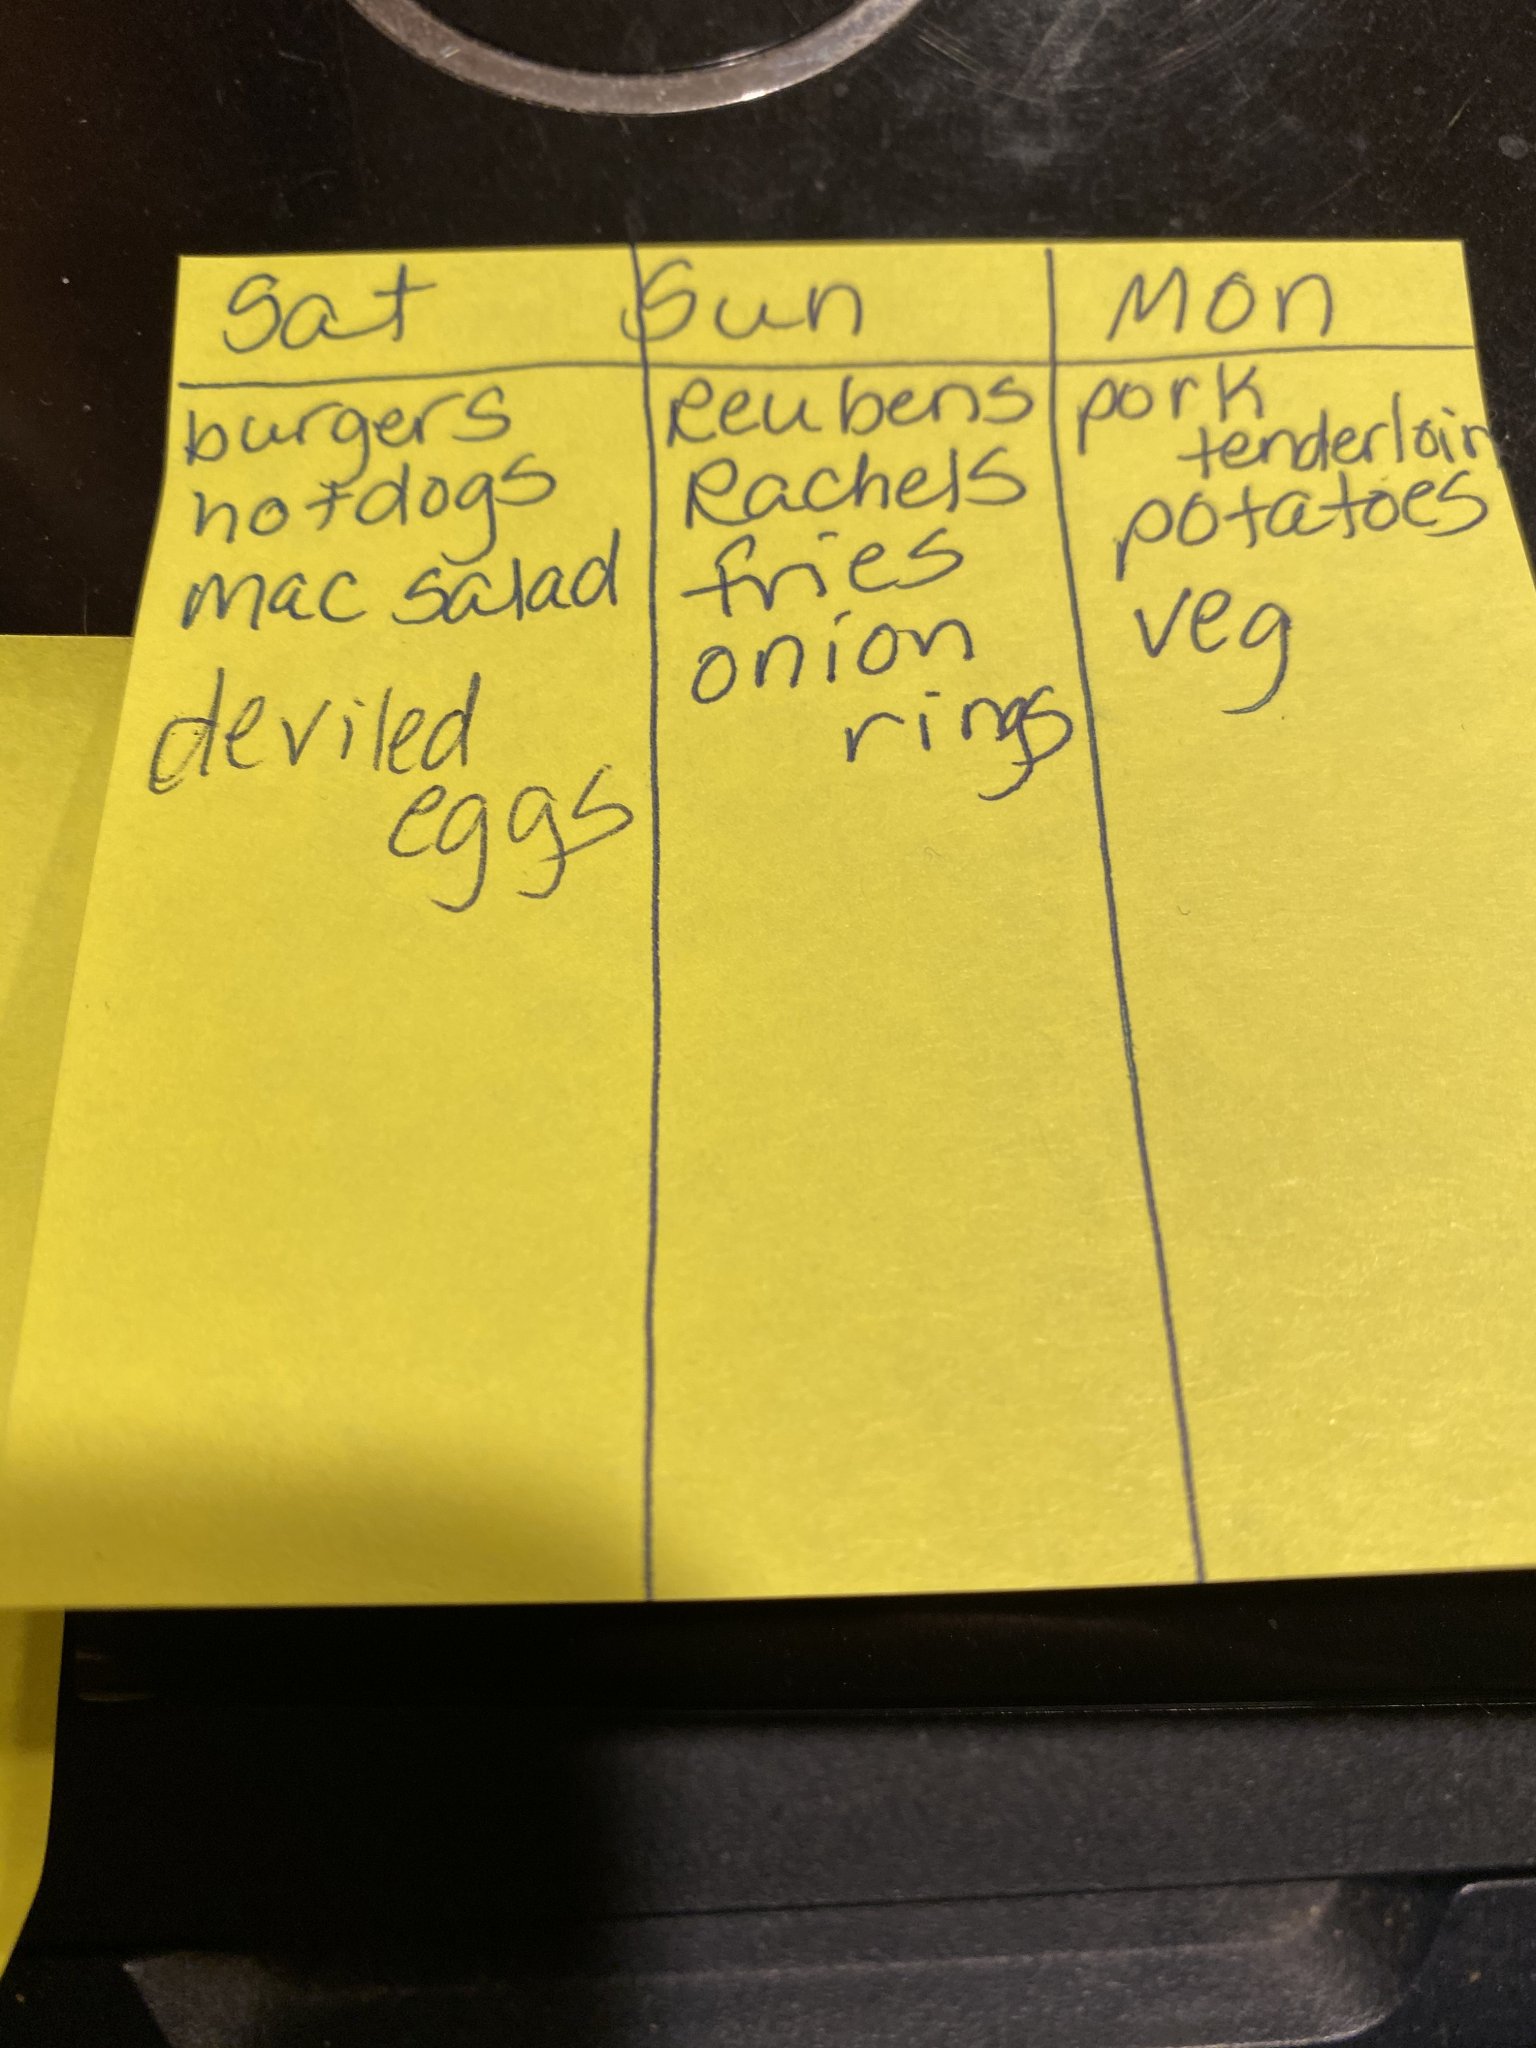 Sat
burgers
hotdogs
mac salad
deviled
eggs
Sun
Reubens
Rachels
fries
onion
rings
Mon
pork
tenderloin
potatoes
veg